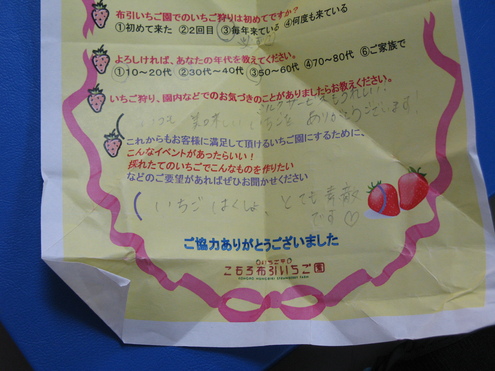 布引いちご園でのいちご狩りは初めてですか?
①初めて来た ②2回目 ③毎年来ている ④何度も来ている
よろしければ、あなたの年代を教えてください。
①10〜20代 ②30代〜40代 ③50〜60代 ④70〜80代 ⑥ご家族で
いちご狩り、園内などでのお気づきのことがありましたらお教えください。
いつも 美味しいいちごを ありがとうございます!
これからもお客様に満足して頂けるいちご園にするために、
こんなイベントがあったらいい!
採れたてのいちごでこんなものを作りたい
などのご要望があればぜひお聞かせください
いちごはくしょ とても素敵
です♡
ご協力ありがとうございました
こもろ布引いちご園
KOMORO NUNOBIKI STRAWBERRY FARM